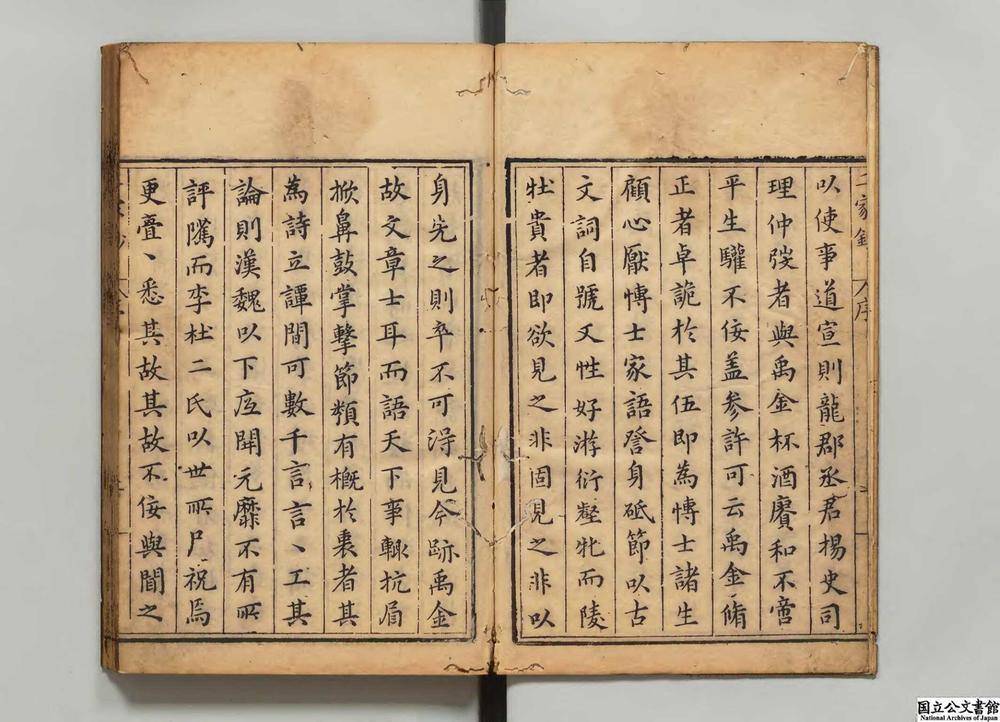 二家鈔 序
以使事道宣則龍郡丞君楊史司
理仲弢者與禹金杯酒賡和不啻
平生驩不佞盖參許可云禹金脩
正者卓詭於其伍即為愽士諸生
顧心厭愽士家語身砥節以古
文詞自號又性好游衍壑牝而陵
牡貴者即欲見之非固見之非以
身先之則卒不可淂見今跡禹金
故文章士耳而語天下事輙抗眉
掀鼻鼓掌擊節類有槪於衷者其
為詩立譚間可數千言言丶工其
論則漢魏以下開元靡不有所
評隲而李杜二氏以世所尸祝焉
更亹丶悉其故其故不佞與聞之
国立公文書館
National Archives of Japan